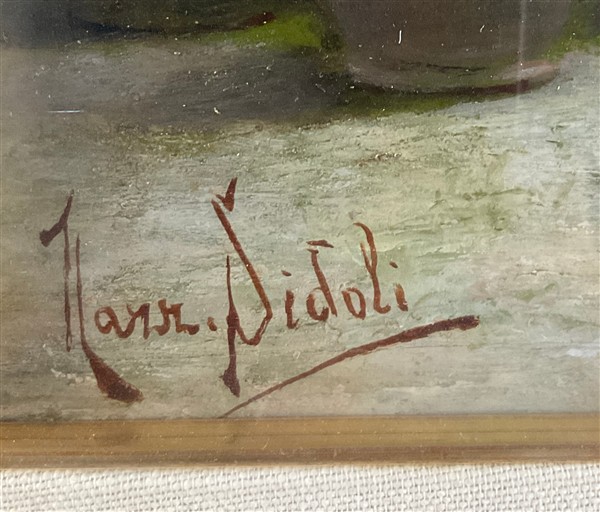 Narr. Didoli